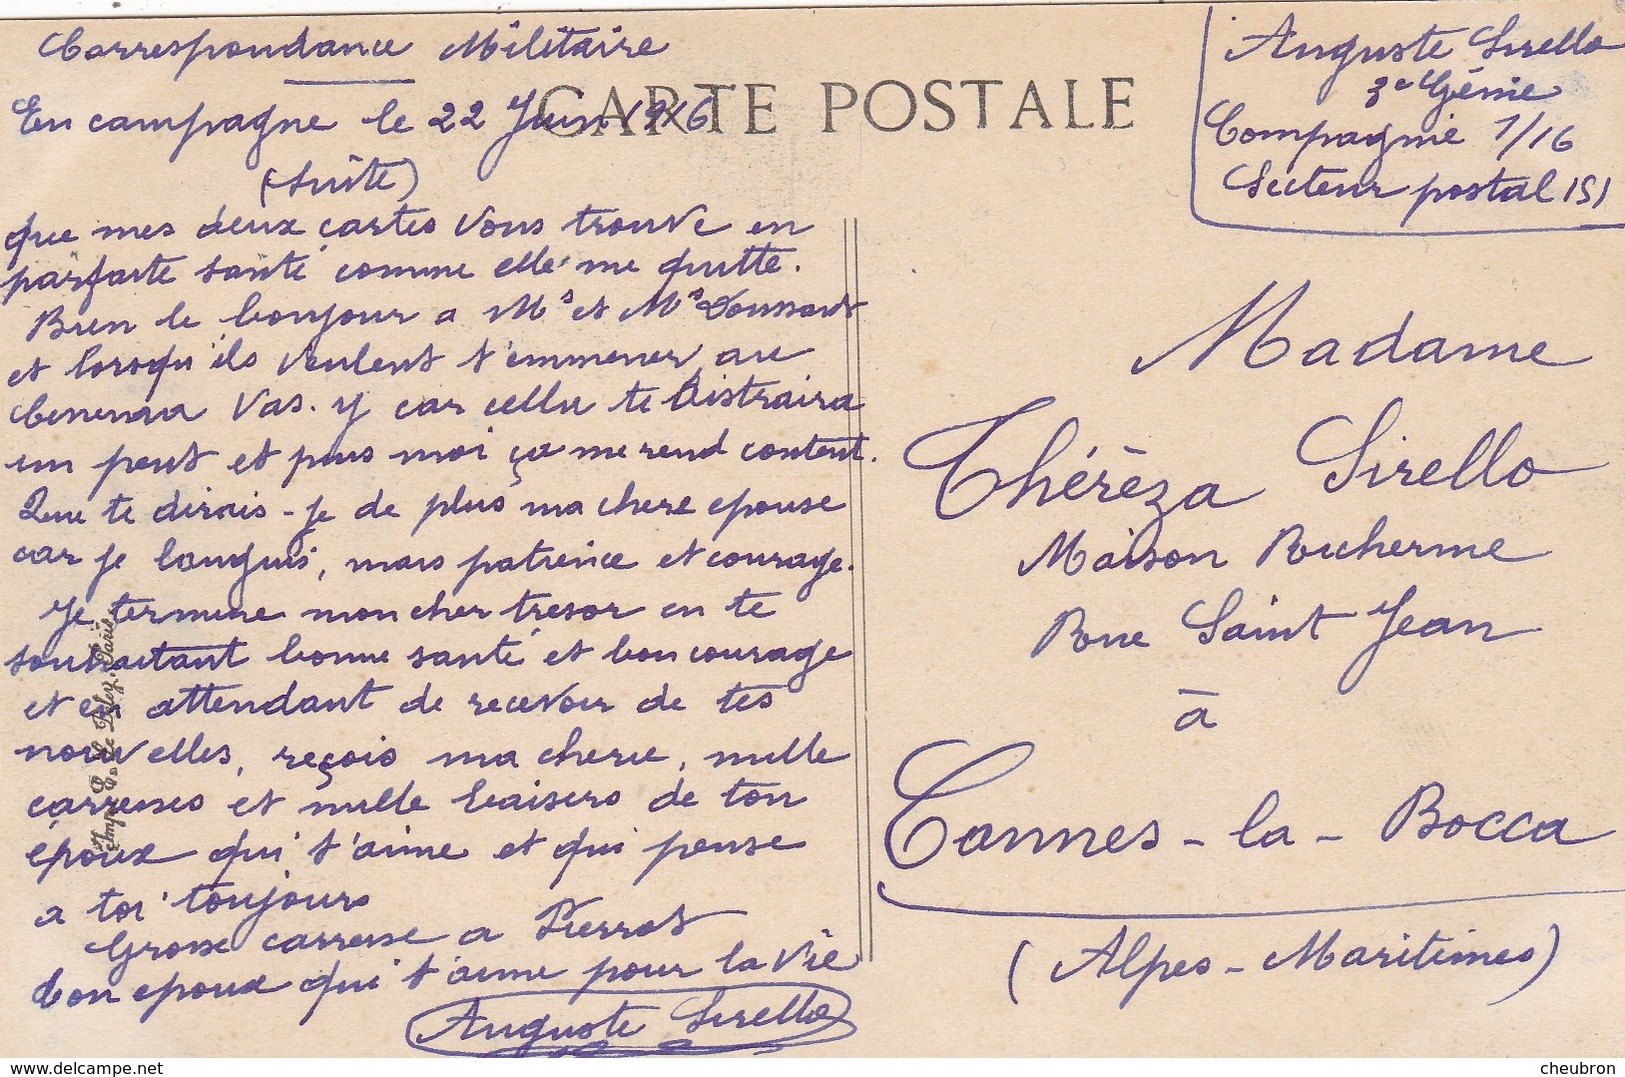 Correspondance Militaire
CARTE POSTALE
En campagne le 22 Juin 1916
(Suite)
que mes deux cartes vous trouve en
parfaite santé comme elle me quitte.
Bien le bonjour a Mr et Me
et lorsqu'ils veulent t'emmener au
Cinnema Vas-y car cella te distraira
un peut et puis moi ça me rend content.
Que te dirais-je de plus ma chere epouse
car je languis, mais patience et courage.
Je termine mon cher tresor en te
souhaitant bonne santé et bon courage
et en attendant de recevoir de tes
nouvelles, reçois ma cherie, mille
carresses et mille baisers de ton
époux qui t'aime et qui pense
a toi toujours
Grosse carresse a Pierrot
Ton epoux qui t'aime pour la vie
Auguste Sirello
Imp. E. Le Deley, Paris
Auguste Sirello
3e Génie
Compagnie 7/16
Secteur postal 151
Madame
Théréza Sirello
Maison Richerme
Rue Saint Jean
à
Cannes-la-Bocca
(Alpes-Maritimes)
www.delcampe.net
cheubron